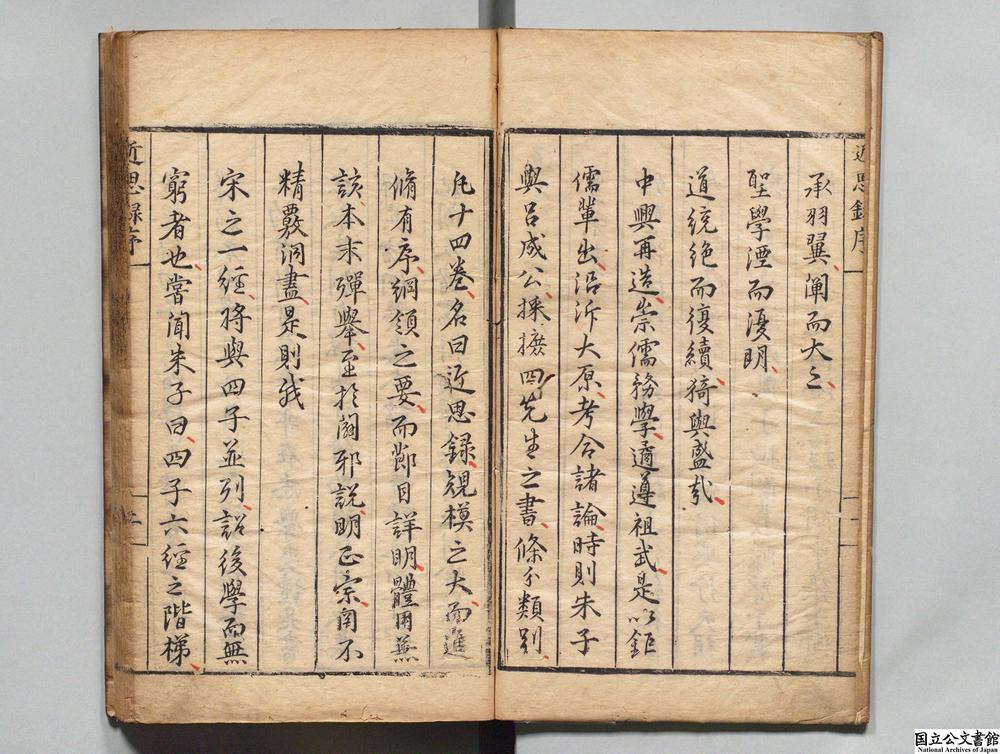 近思録序
承羽翼闡而大之
聖學湮而復明
道統絶而復續猗與盛哉
中興再造崇儒務學遹遵祖武是以鉅
儒輩出沿泝大原考合諸論時則朱子
與呂成公採摭四先生之書條分類別
凡十四卷名曰近思録規模之大而進
脩有序綱領之要而節目詳明體用兼
該本末殫舉至於闢邪說明正宗罔不
精覈洞盡是則我
宋之一經将與四子並列詔後學而無
窮者也嘗聞朱子曰四子六經之階梯
近思録序
二
国立公文書館
National Archives of Japan